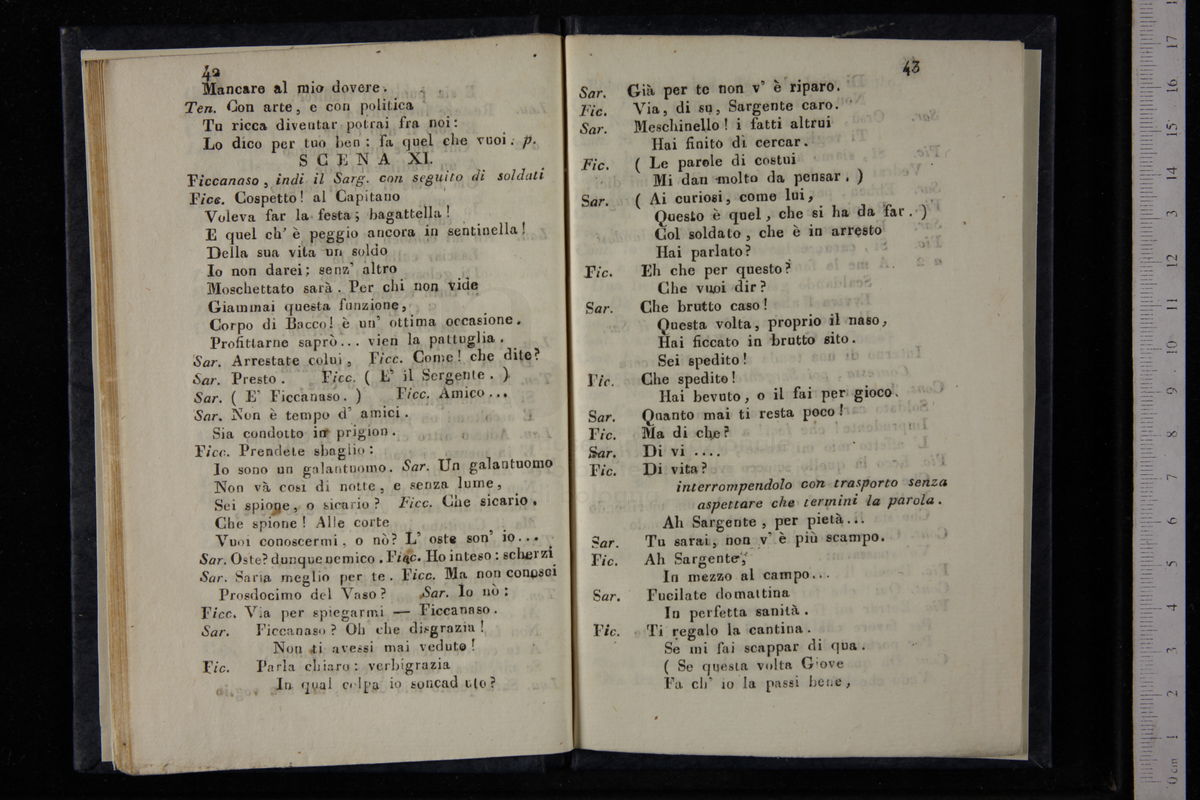 42
Mancare al mio dovere.
Ten. Con arte, e con politica
Tu ricca diventar potrai fra noi:
Lo dico per tuo ben: fa quel che vuoi. p.
SCENA XI.
Ficcanaso, indi il Sarg. con seguito di soldati
Ficc. Cospetto! al Capitano
Voleva far la festa; bagattella!
E quel ch' è peggio ancora in sentinella!
Della sua vita un soldo
Io non darei; senz' altro
Moschettato sarà. Per chi non vide
Giammai questa funzione,
Corpo di Bacco! è un' ottima occasione.
Profittarne saprò... vien la pattuglia.
Sar. Arrestate colui, Ficc. Come! che dite?
Sar. Presto. Ficc. ( E' il Sergente. )
Sar. ( E' Ficcanaso. ) Ficc. Amico...
Sar. Non è tempo d' amici.
Sia condotto in prigion.
Ficc. Prendete sbaglio:
Io sono un galantuomo. Sar. Un galantuomo
Non và così di notte, e senza lume,
Sei spione, o sicario? Ficc. Che sicario.
Che spione! Alle corte
Vuoi conoscermi, o nò? L' oste son' io...
Sar. Oste? dunque nemico. Ficc. Ho inteso: scherzi
Sar. Saria meglio per te. Ficc. Ma non conosci
Prosdocimo del Vaso? Sar. Io nò:
Ficc. Via per spiegarmi — Ficcanaso.
Sar. Ficcanaso? Oh che disgrazia!
Non ti avessi mai veduto!
Fic. Parla chiaro: verbigrazia
In qual colpa io soncad uto?
43
Sar. Già per te non v' è riparo.
Fic. Via, di su, Sargente caro.
Sar. Meschinello! i fatti altrui
Hai finito di cercar.
Fic. ( Le parole di costui
Mi dan molto da pensar. )
Sar. ( Ai curiosi, come lui,
Questo è quel, che si ha da far. )
Col soldato, che è in arresto
Hai parlato?
Fic. Eh che per questo?
Che vuoi dir?
Sar. Che brutto caso!
Questa volta, proprio il naso,
Hai ficcato in brutto sito.
Sei spedito!
Fic. Che spedito!
Hai bevuto, o il fai per gioco.
Sar. Quanto mai ti resta poco!
Fic. Ma di che?
Sar. Di vi ....
Fic. Di vita?
interrompendolo con trasporto senza
aspettare che termini la parola.
Ah Sargente, per pietà...
Sar. Tu sarai, non v' è più scampo.
Fic. Ah Sargente,
In mezzo al campo...
Sar. Fucilate domattina
In perfetta sanità.
Fic. Ti regalo la cantina.
Se mi fai scappar di qua.
( Se questa volta Giove
Fa ch' io la passi bene,
0 cm 1 2 3 4 5 6 7 8 9 10 11 12 13 14 15 16 17